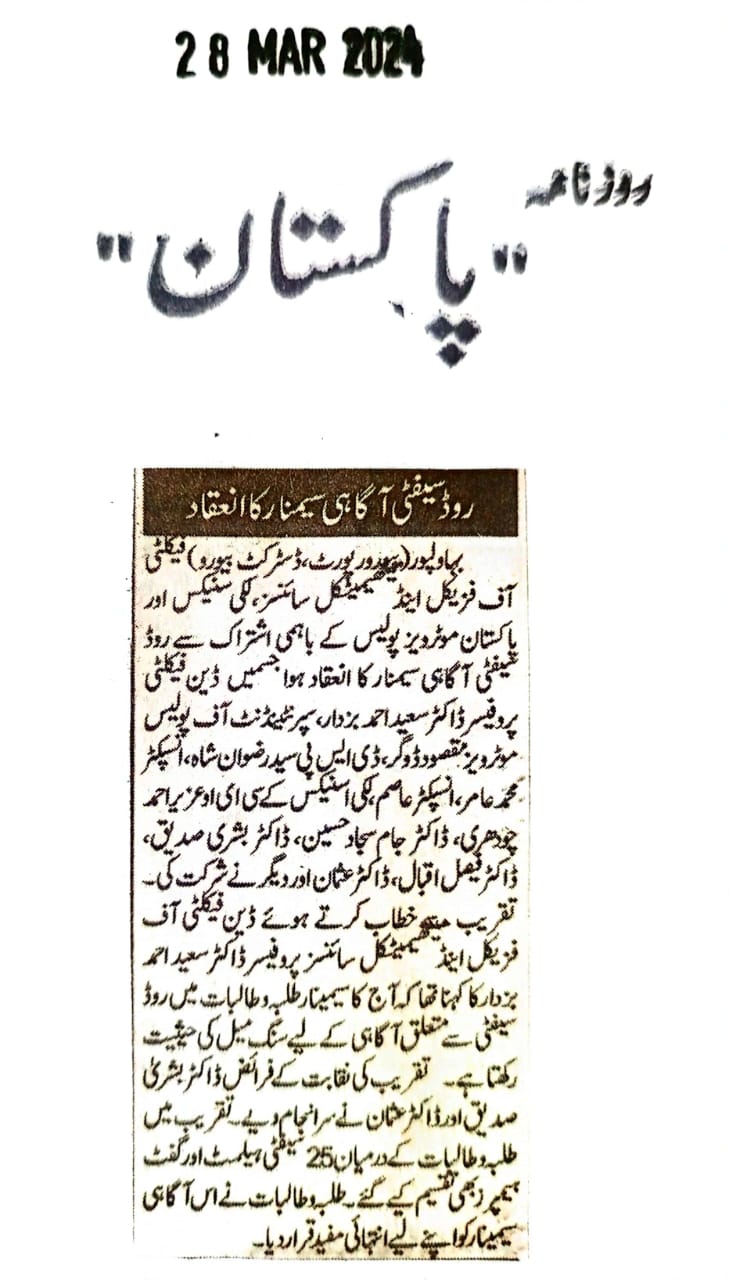 28 MAR 2024
روزنامہ
"پاکستان"
روڈ سیفٹی آگاہی سیمنار کا انعقاد
بہاولپور (بیورو رپورٹ، ڈسٹرکٹ بیورو) فیکلٹی
آف فزیکل اینڈ میتھیمیٹیکل سائنسز، لکی سٹیکس اور
پاکستان موٹرویز پولیس کے باہمی اشتراک سے روڈ
سیفٹی آگاہی سیمنار کا انعقاد ہوا جسمیں ڈین فیکلٹی
پروفیسر ڈاکٹر سعید احمد بزدار، سپرنٹینڈنٹ آف پولیس
موٹرویز مقصود ڈوگر، ڈی ایس پی سید رضوان شاہ، انسپکٹر
محمد عامر، انسپکٹر عاصم، لکی اسٹیکس کے سی ای او عزیر احمد
چودھری، ڈاکٹر جام سجاد حسین، ڈاکٹر بشری صدیق،
ڈاکٹر فیصل اقبال، ڈاکٹر عثمان اور دیگر نے شرکت کی۔
تقریب سے خطاب کرتے ہوئے ڈین فیکلٹی آف
فزیکل اینڈ میتھیمیٹیکل سائنسز پروفیسر ڈاکٹر سعید احمد
بزدار کا کہنا تھا کہ آج کا سیمینار طلبہ و طالبات میں روڈ
سیفٹی سے متعلق آگاہی کے لیے سنگ میل کی حیثیت
رکھتا ہے۔ تقریب کی نقابت کے فرائض ڈاکٹر بشریٰ
صدیق اور ڈاکٹر عثمان نے سرانجام دیے۔ تقریب میں
طلبہ و طالبات کے درمیان 25 سیفٹی ہیلمٹ اور گفٹ
ہیمپرز بھی تقسیم کیے گئے۔ طلبہ و طالبات نے اس آگاہی
سیمینار کو اپنے لیے انتہائی مفید قرار دیا۔